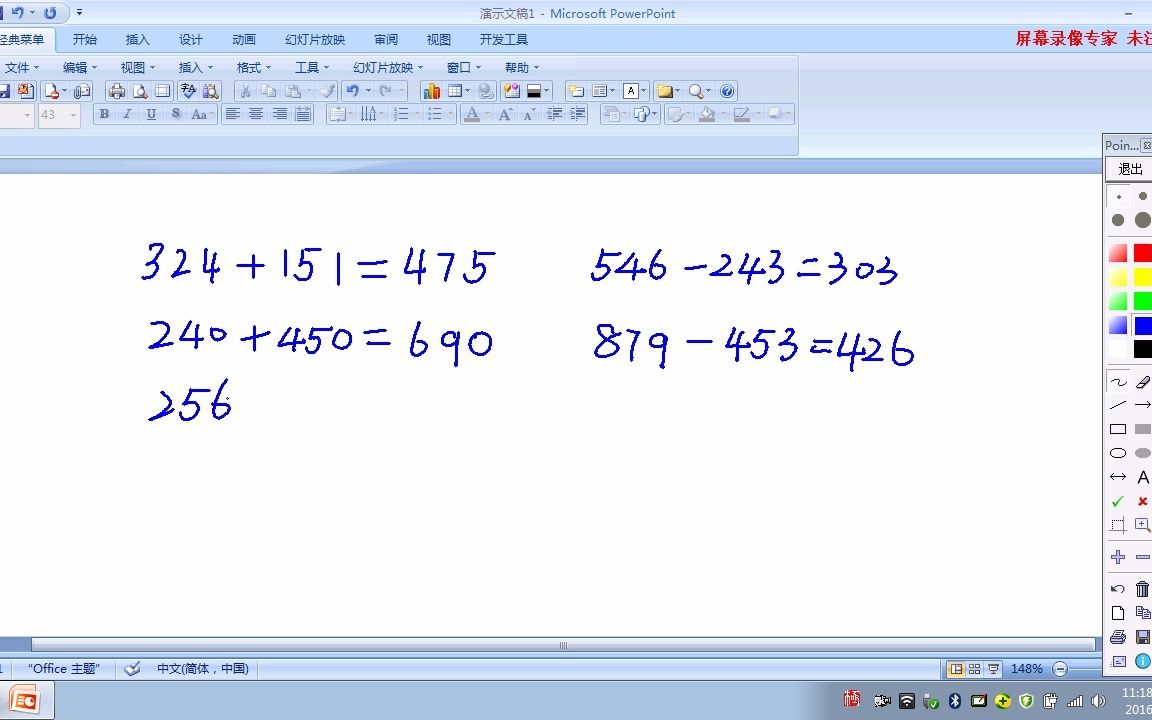 演示文稿1 - Microsoft PowerPoint
经典菜单 开始 插入 设计 动画 幻灯片放映 审阅 视图 开发工具
屏幕录像专家 未
文件 编辑 视图 插入 格式 工具 幻灯片放映 窗口 帮助
43 B I U S Aa A A A
Poin...
退出
324+151=475 546-243=303
240+450=690 879-453=426
256
A
"Office 主题" 中文(简体，中国) 148%
11:18
2016